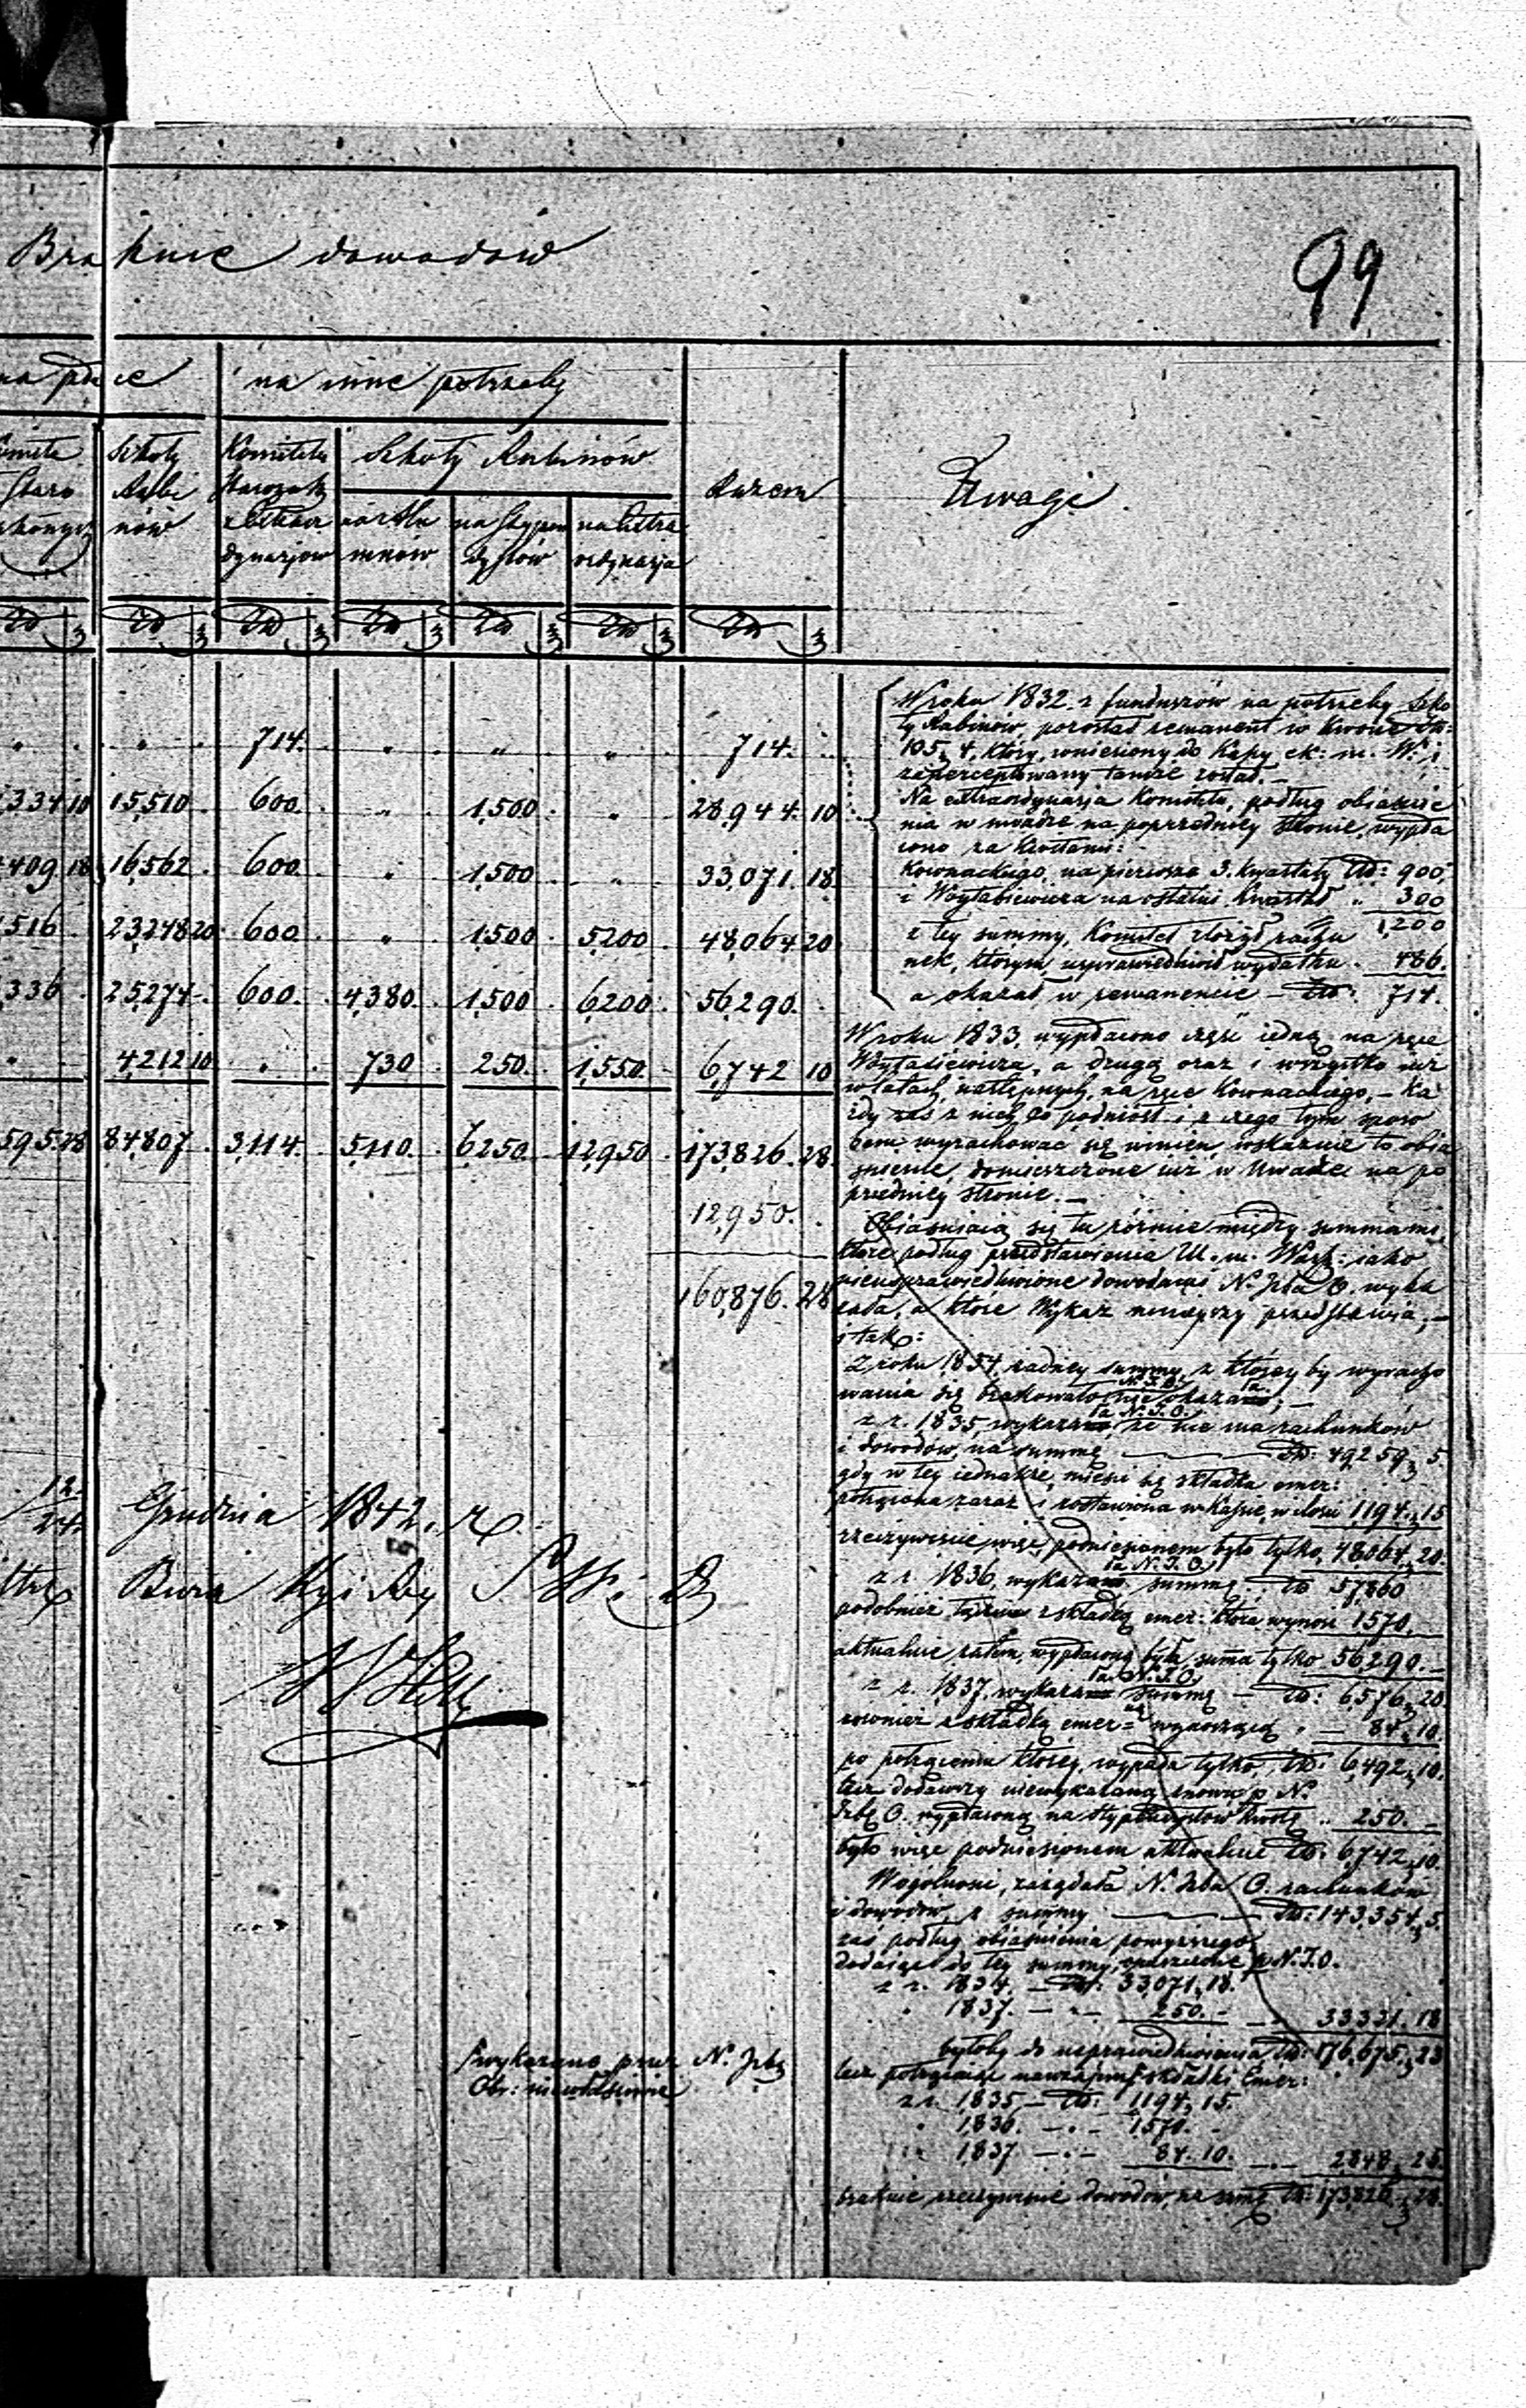 Braknie dowodów
99
na płace
na inne potrzeby
Szkoły Rabinów
Razem
Uwagi
Szkoły Rabinów
Komitetu Starozak z extraordynarjow
na stypendystów
na Extraordynarja
Zł gr Zł gr Zł gr Zł gr Zł gr Zł gr Zł gr
" " 714. " " " 714.
334 10 15,510 600 " 1,500 " 28,944. 10
409 18 16,562 600 " 1,500 " 33,071. 18
516 23,248 20 600 " 1,500 5,200 48,064 20
336 25,274 600. 4,380. 1,500 6,200 56,290.
" 4,212 10 " 730 250. 1,550. 6,742 10
595.28 84,807 3,114. 5,110. 6,250. 12,950 173,826. 28.
12,950.
160,876. 28
W roku 1832. z funduszów na potrzeby Szko
ły Rabinów, pozostał remanent w kwocie Zł:
105, 4, który, wniesiony do Kassy ek: m. W. i
zapercepowany tamże został. –
Na extraordynarja Komitetu, podług obiaśnie
nia w uwadze na poprzedniey stronie, wypła
cono za kwitami:
Kownackiego, na pierwsze 3. kwartały Zł: 900,
i Woytasiewicza na ostatni kwartał " 300
1,200
z tey summy, Komitet złożył rachu
nek, którym usprawiedliwił wydatku. 486.
a okazał w remanencie – Zł: 714.
W roku 1833, wypłacono część iedną na ręce
Woytasiewicza, a drugą oraz i wszystko iuż
w latach następnych, na ręce Kownackiego, – Ka
żdy zaś z nich co podniósł i z czego tym sposo
bem wyrachować się winien, wskazuie to obia
śnienie, domieszczone iuż w Uwadze na po
przedniey stronie. –
Obiaśniaią się tu różnice między summami,
które podług przedstawienia U. m. Warsz: iako
nieusprawiedliwione dowodami N. Izba O. wyka
zała, a które Wykaz ninieyszy przedstawia, –
i tak:
Z roku 1834, żadney summy, z którey by wyracho
wania się brakowało N. I. O. nie okazała; –
z r. 1835, wykazała N. I. O. że nie ma rachunków
i dowodów, na summę — Zł: 49,259, 5.
gdy w tey iednakże mieści się składka emer:
potrącona zaraz i zostawiona w kassie, w ilości 1194. 15
rzeczywiście więc, podniesionem było tylko, 48064, 20.
z r. 1836, wykazała N. I. O. summę. Zł 57,860
podobnież łącznie z składką emer: która wynosi 1570.
aktualnie zatem, wypłaconą była summa tylko 56,290. –
z r. 1837, wykazała N. I. O. summę – Zł: 6,576, 20
również z składką emer: wynoszącą " – 84, 10.
po potrąceniu którey, wypada tylko, Zł: 6,492, 10.
lecz dodawszy niewykazaną znowu p N.
Izbę O. wypłaconą na stypendystów kwotę " 250. –
było więc podniesionem aktualnie Zł: 6,742, 10.
W ogólności, zażądała N. Izba O. rachunków
i dowodów, z summy — Zł: 143,354, 5.
zaś podług obiaśnienia powyższego,
dodaiąc do tey summy, opuszczone p N. I. O.
z r. 1834. – Zł: 33,071, 18.
" 1837. – " – 250. – – 33,321. 18
byłoby do usprawiedliwienia, Zł: 176,675, 23
lecz potrąciaiąc nawzaiem składki Emer:
z r. 1835, – Zł: 1194, 15.
" 1836. – " – 1570. –
" 1837 – " – 84. 10. – " – 2,848, 25.
braknie rzeczywiście dowodów, na summę Zł: 173,826, 28.
12/24 Grudnia 1842. r.
Biura
wykazano przez N. Izbę
Obr: niewłaściwie